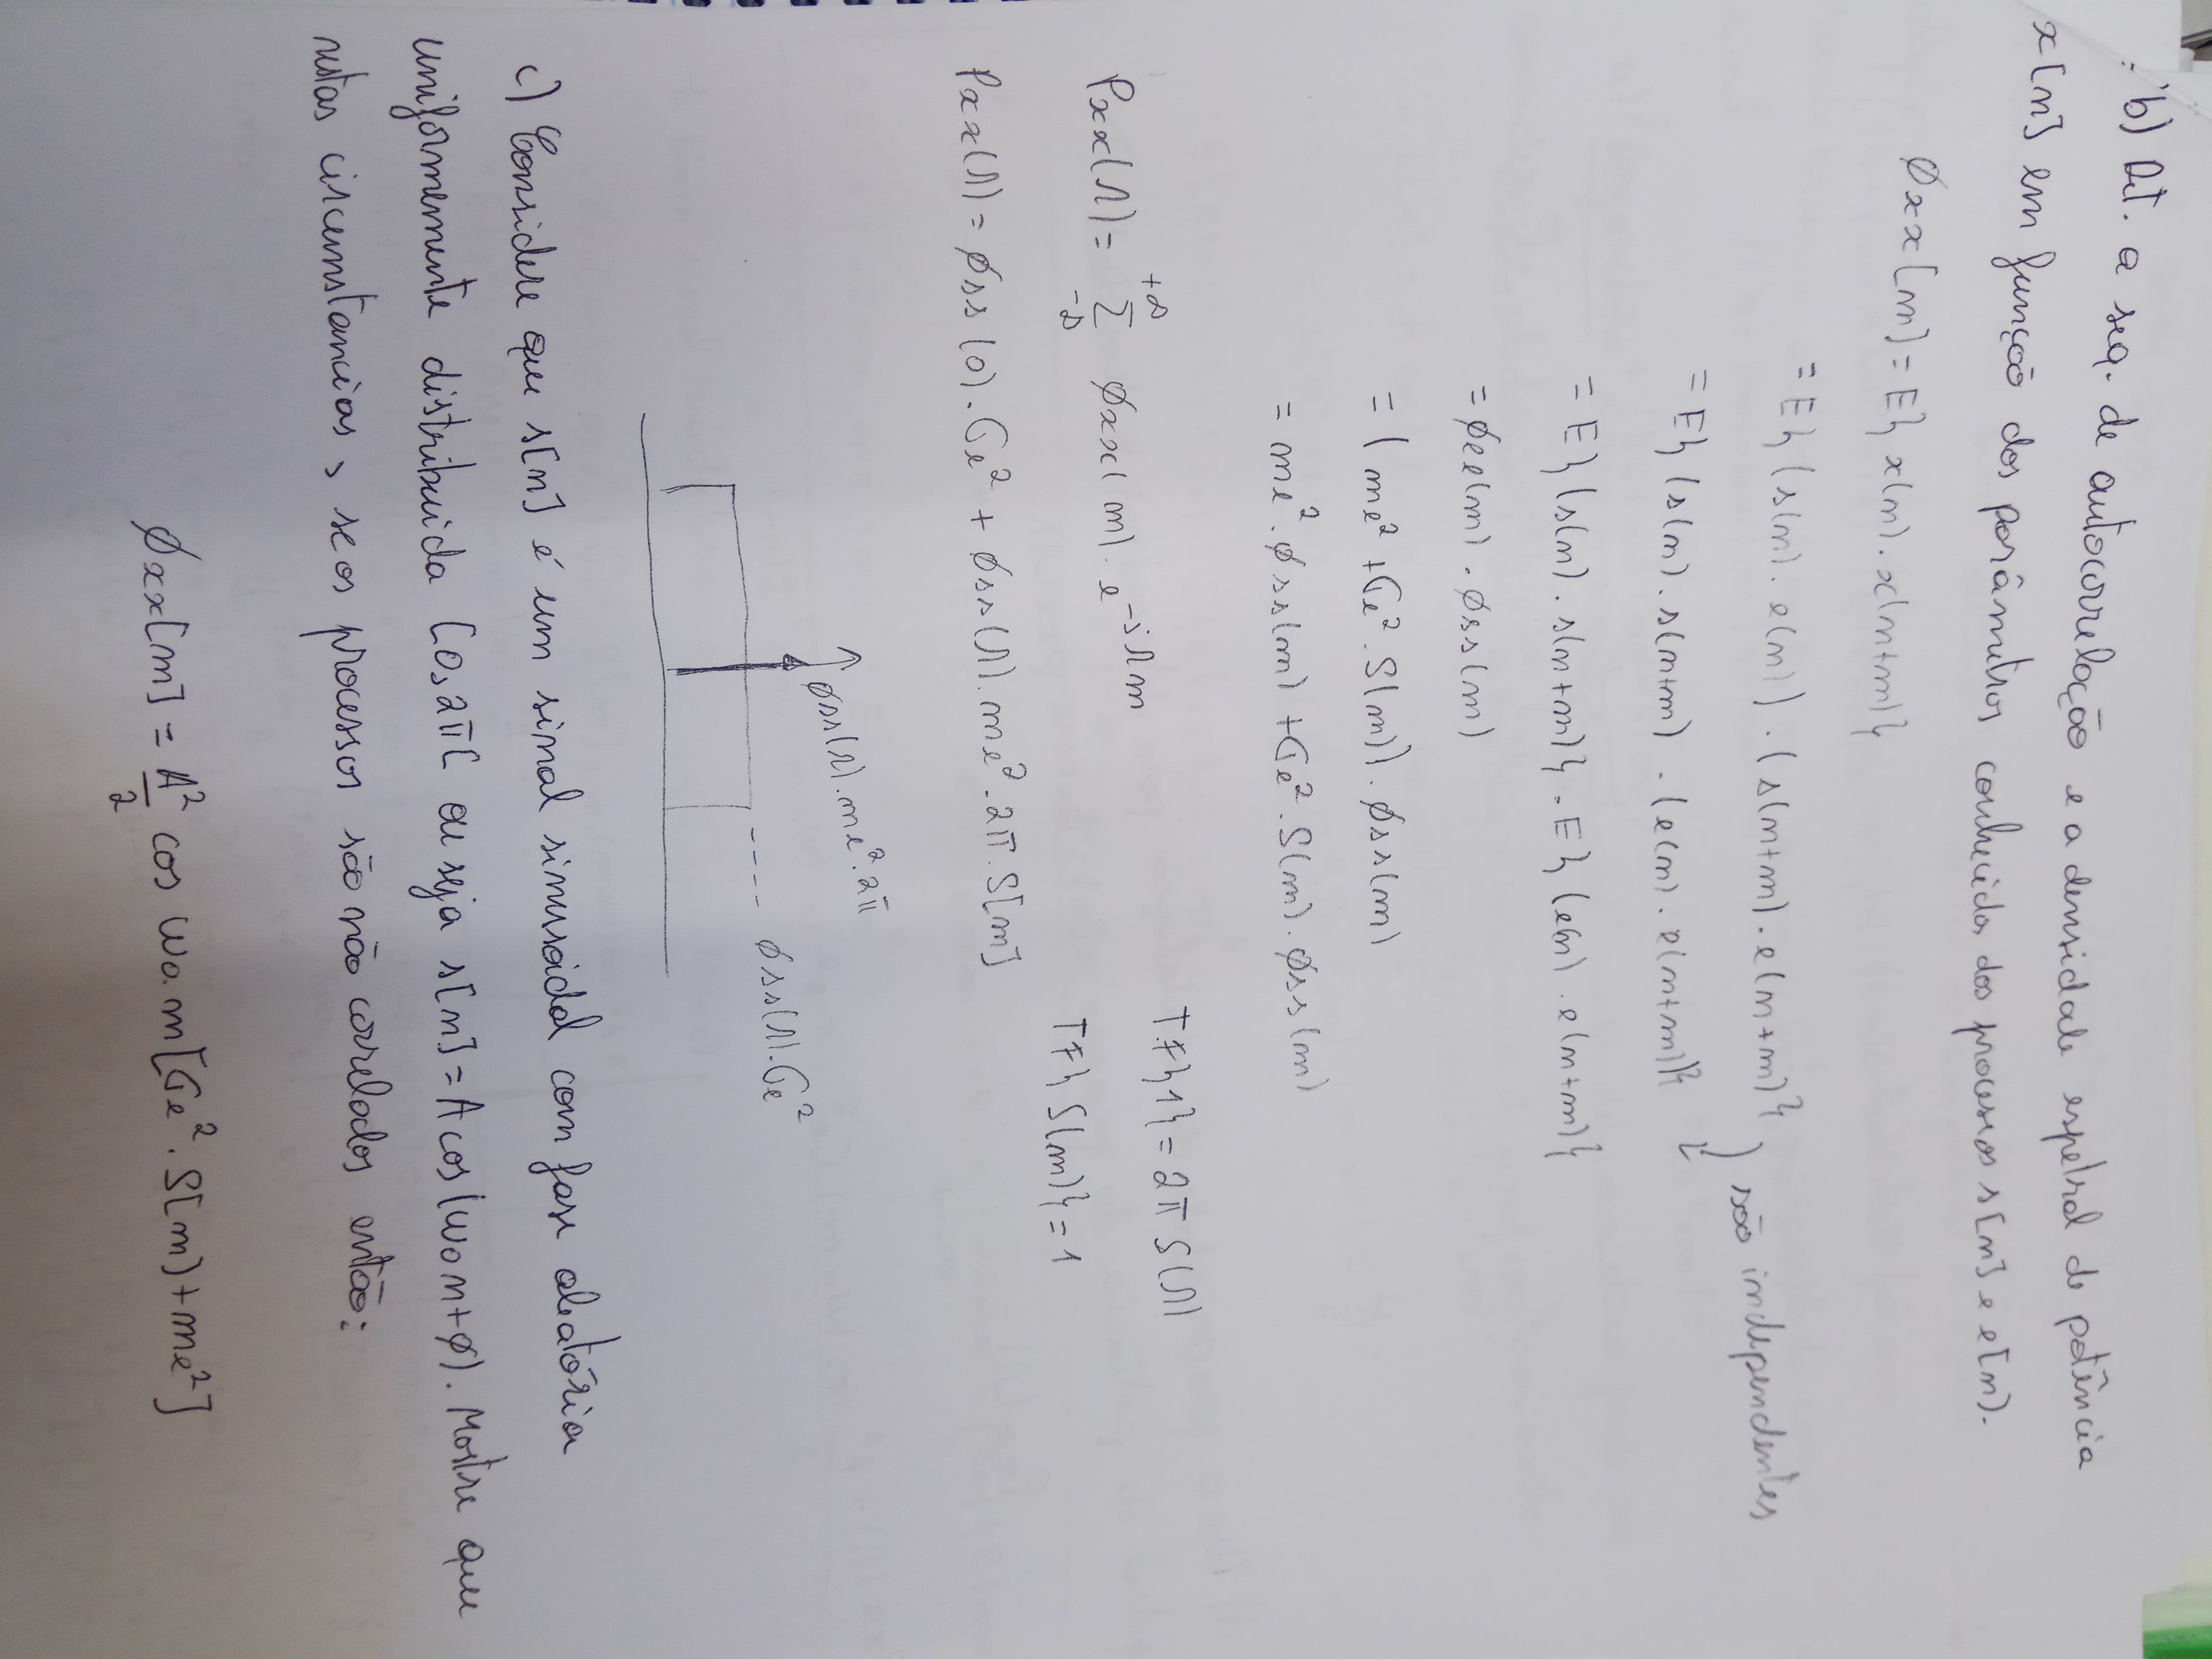 b) Det. a seq. de autocorrelação e a densidade espetral de potência
x[n] em função dos parâmetros conhecidos dos processos s[n] e e[n].
Øxx[m] = E{ x(n) . x(n+m) }
= E{ (s(n) . e(n)) . (s(n+m) . e(n+m) }
são independentes
= E{ (s(n) . s(n+m) . (e(n) . e(n+m)) }
= E{ (s(n) . s(n+m) } . E{ (e(n) . e(n+m) }
= Øee(m) . Øss(m)
= (me² + σe² . δ(m)) . Øss(m)
= me² . Øss(m) + σe² . δ(m) . Øss(m)
TF{1} = 2π δ(Ω)
Pxx(Ω) = Σ Øxx(m) . e^-jΩm
+∞
-∞
TF{ δ(m) } = 1
Pxx(Ω) = Øss(0) . σe² + Øss(Ω) . me² . 2π . δ[m]
Øss(Ω) . me² . 2π
Øss(Ω) . σe²
c) Considere que s[n] é um sinal sinusoidal com fase aleatória
uniformemente distribuida [0,2π[ ou seja s[n] = A cos(ωon+φ). Mostre que
nestas circunstancias, se os processos são não correlados então:
Øxx[m] = A²/2 cos ωo.m [σe² . δ[m) + me²]